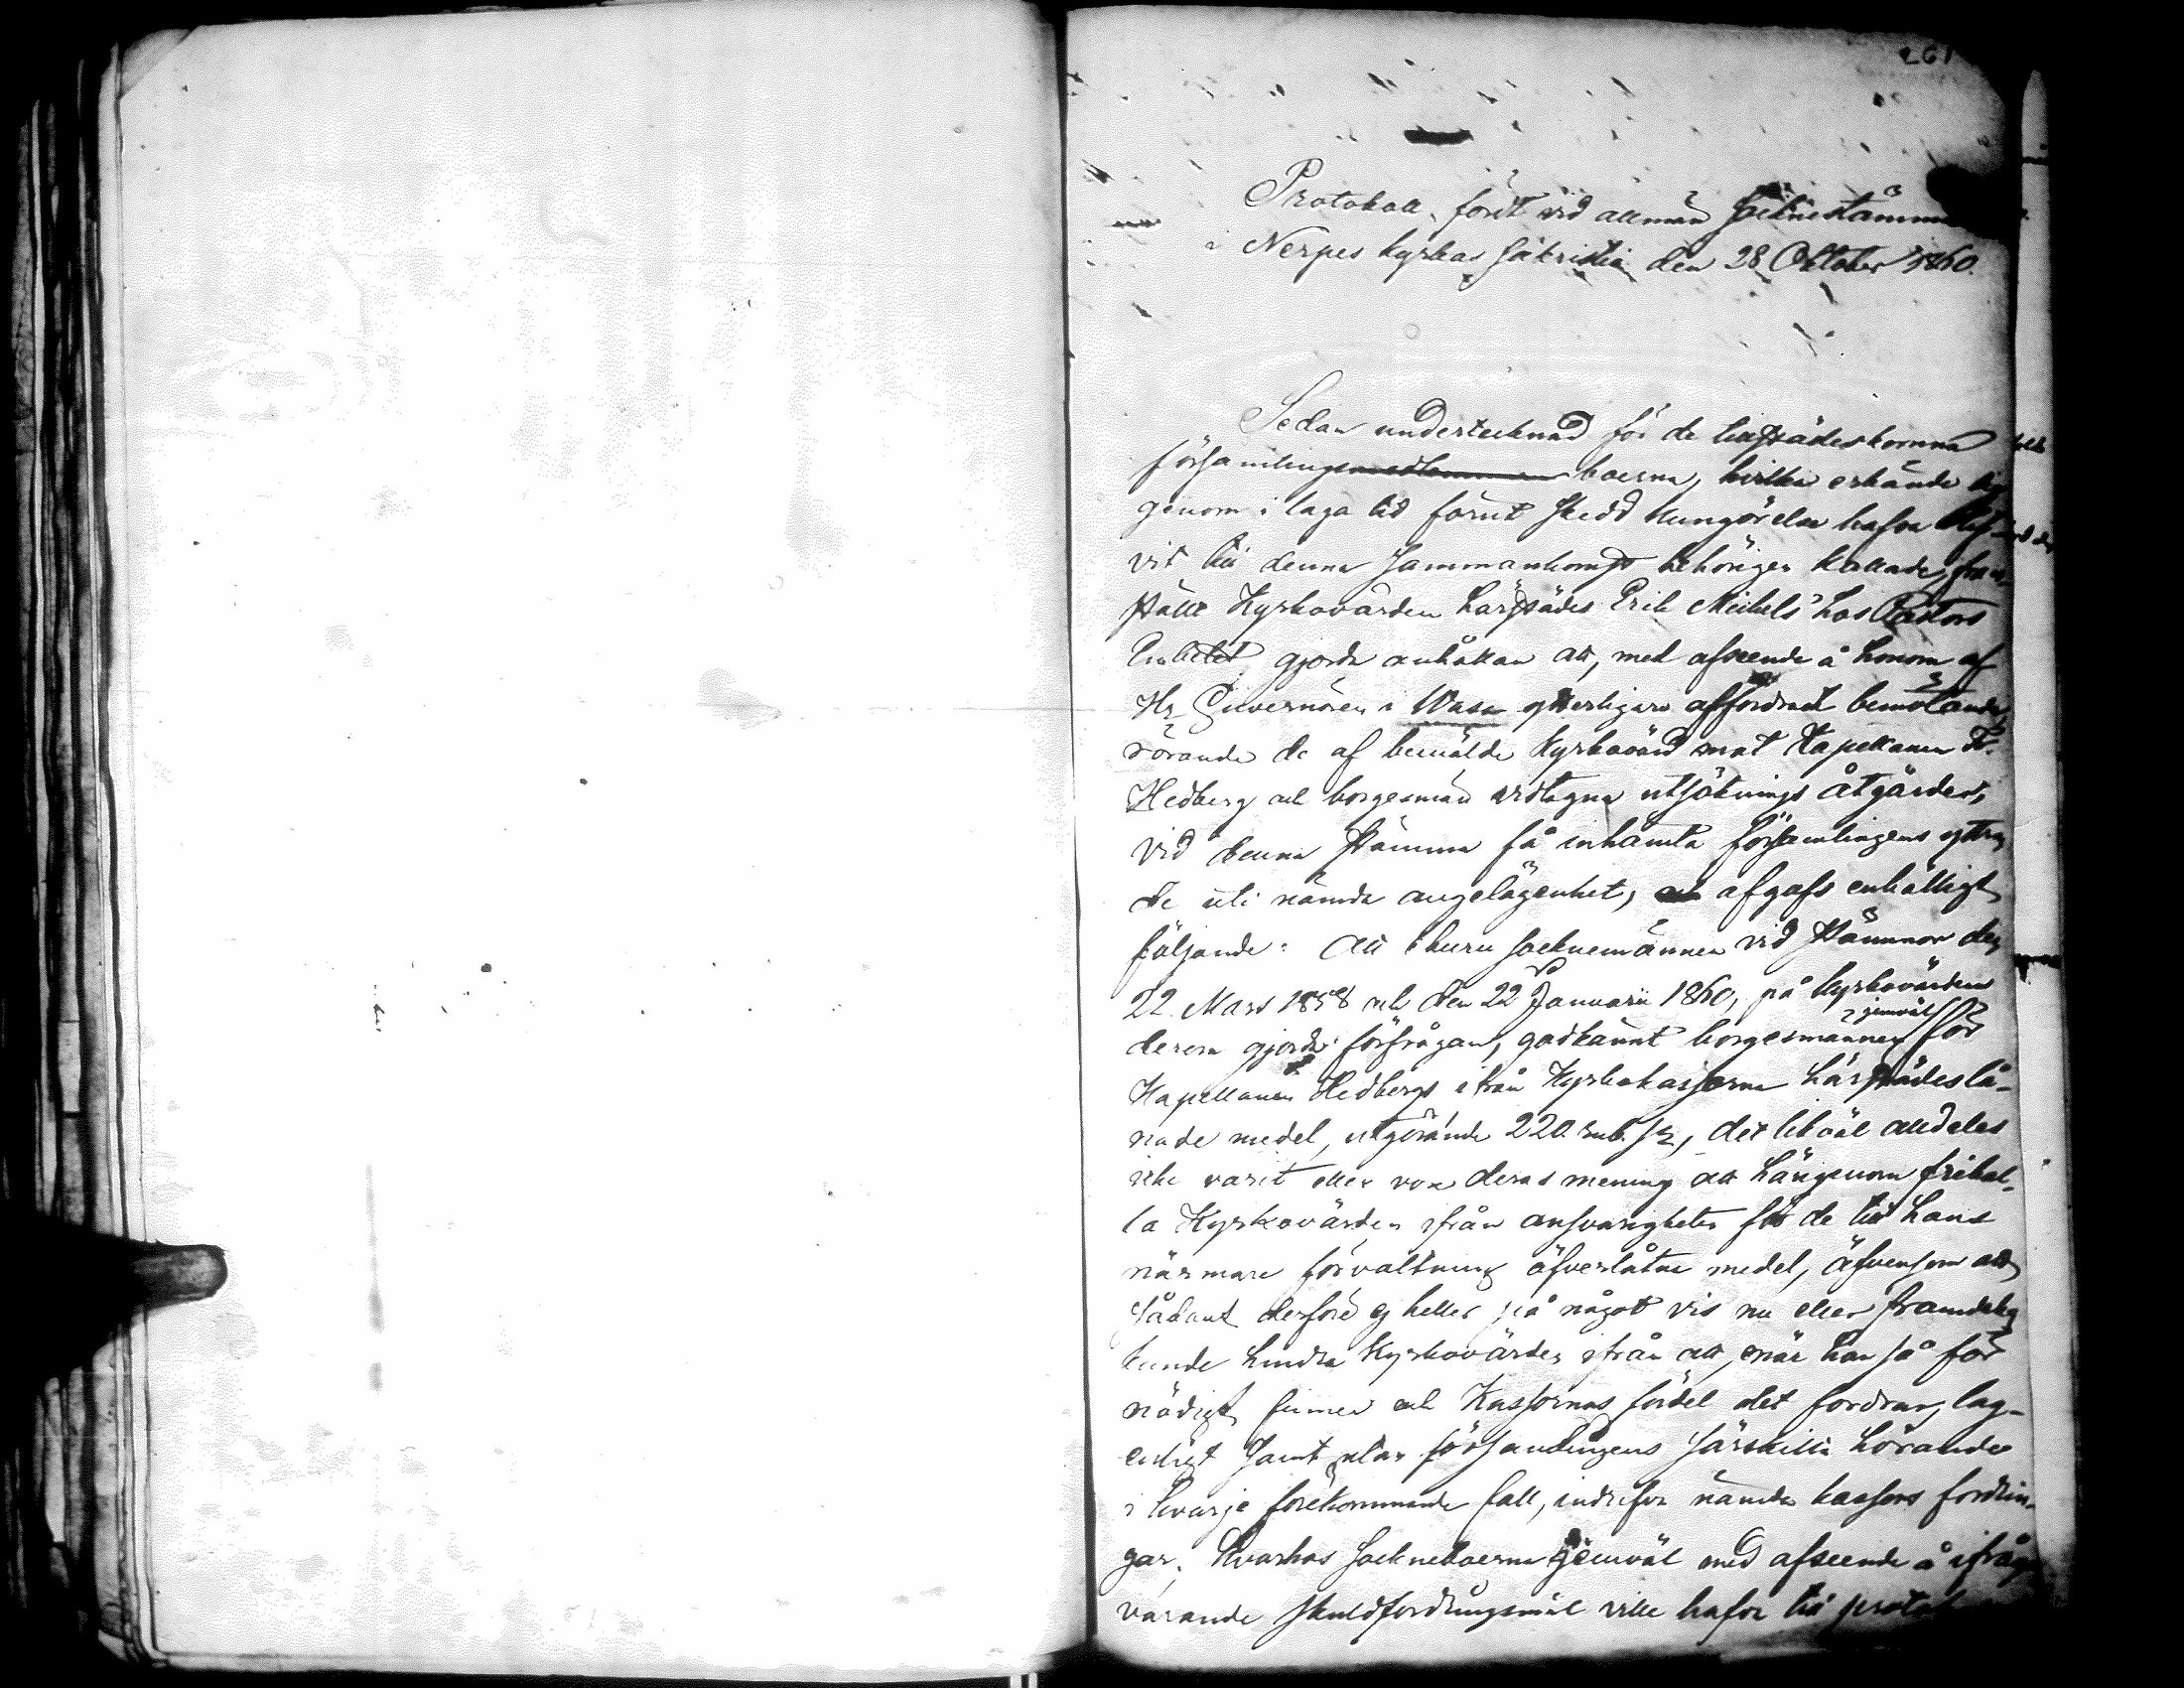 261
Protokoll, fördt vid allmän Socknestämma
i Nerpes kyrkas sakristia den 28 Oktober 1860.
Sedan undertecknad för de tillstädeskomna
församlings boerna, hvilka erkände sig
genom i laga tid förut skedd kungörelse hafva blif-
vit till denna sammankomst behörigen kallade, fram-
stält Kyrkovärden härstädes Erik Meihels hos Pastors
Embetet gjorda anhållan att, med afseende å honom af
Hr Guvernören i Wasa ytterligare affordradt bemötande,
rörande de af bemälde Kyrkovärd mot Kapellanen F.
Hedberg och borgesmän vidtagna utsöknings åtgärder,
vid denna stämma få inhämta församlingens yttran
de uti nämda angelägenhet, afgafs enhälligt
följande: att ehuru socknemännen vid stämmor den
22 Mars 1858 och den 22 Januarii 1860, på kyrkovärdens
derom gjorda förfrågan, godkännt borgesmännen jemväl för
Kapellanen Hedbergs ifrån Kyrkokassorna härstädes lå-
nade medel, utgörande 220 rub. Sr, det likväl alldeles
icke varit eller vore deras mening att härigenom frikal-
la Kyrkovärden ifrån ansvarigheten för de till hans
närmare förvaltning öfverlåtna medel, äfvensom att
sådant derföre ej heller på något vis nu eller framdeles
kunde hindra Kyrkovärden ifrån att, enär han så för
nödigt finner och Kassornas fördel det fordrar, lag-
enligt samt utan församlingens särskilda hörande
i hvarje förekommande fall, indrifva nämda kassors fordrin-
gar. Hvarhos sockneboerna jemväl med afseende å ifråga
varande skuldfordringsmål ville hafva till